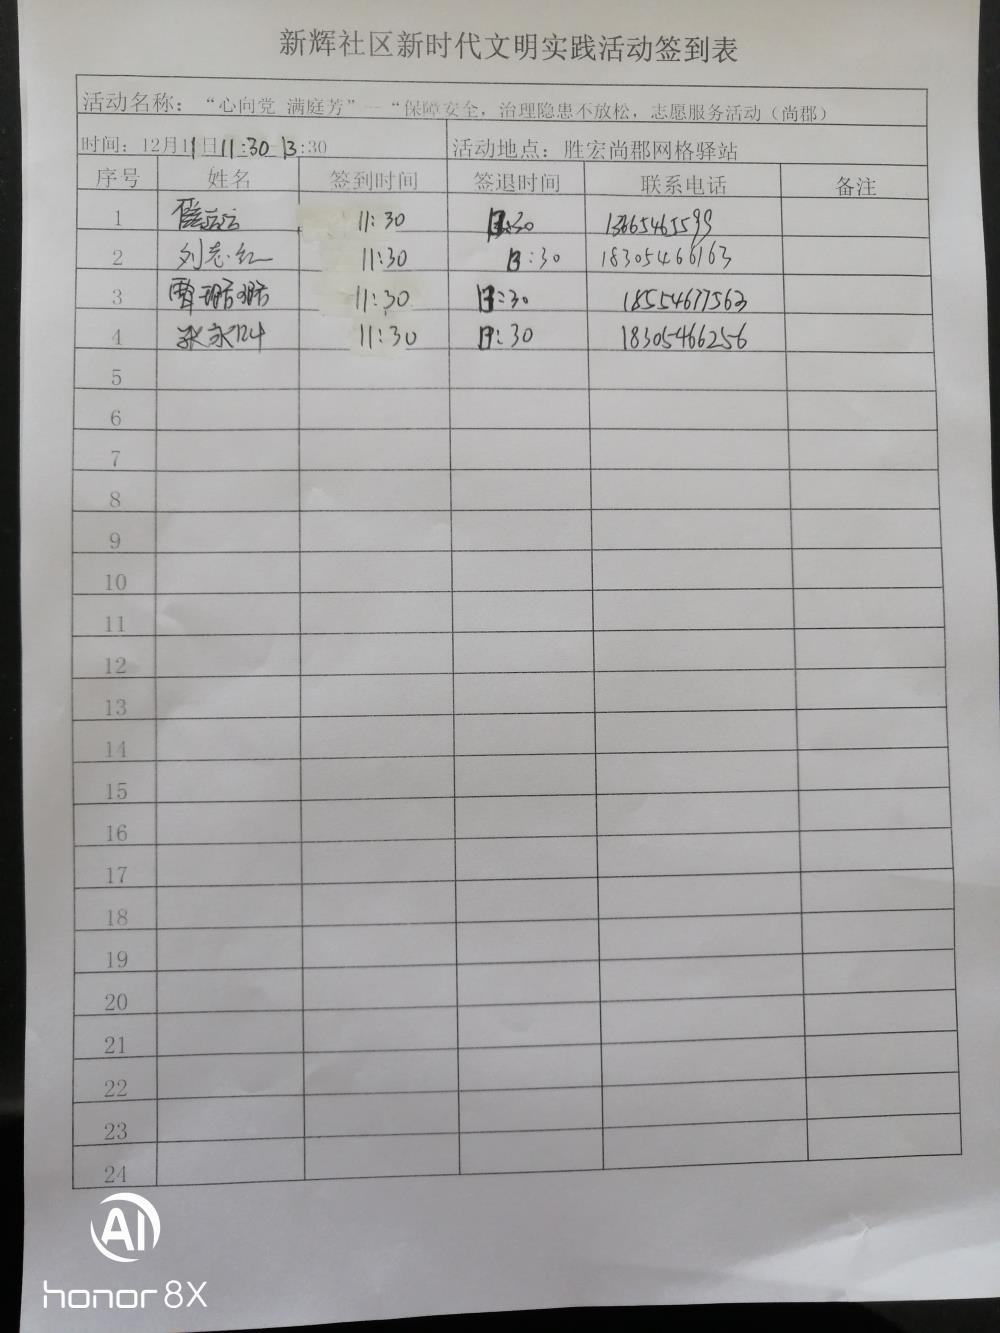 新辉社区新时代文明实践活动签到表
活动名称：“心向党 满庭芳”—“保障安全，治理隐患不放松，志愿服务活动（尚郡）
时间：12月11日11:30-13:30 活动地点：胜宏尚郡网格驿站
序号 姓名 签到时间 签退时间 联系电话 备注
1 11:30 13:30
2 刘志红 11:30 13:30 18305466163
3 贾珊珊 11:30 13:30 18554677563
4 张永 11:30 13:30 18305466256
5
6
7
8
9
10
11
12
13
14
15
16
17
18
19
20
21
22
23
24
AI
honor 8X